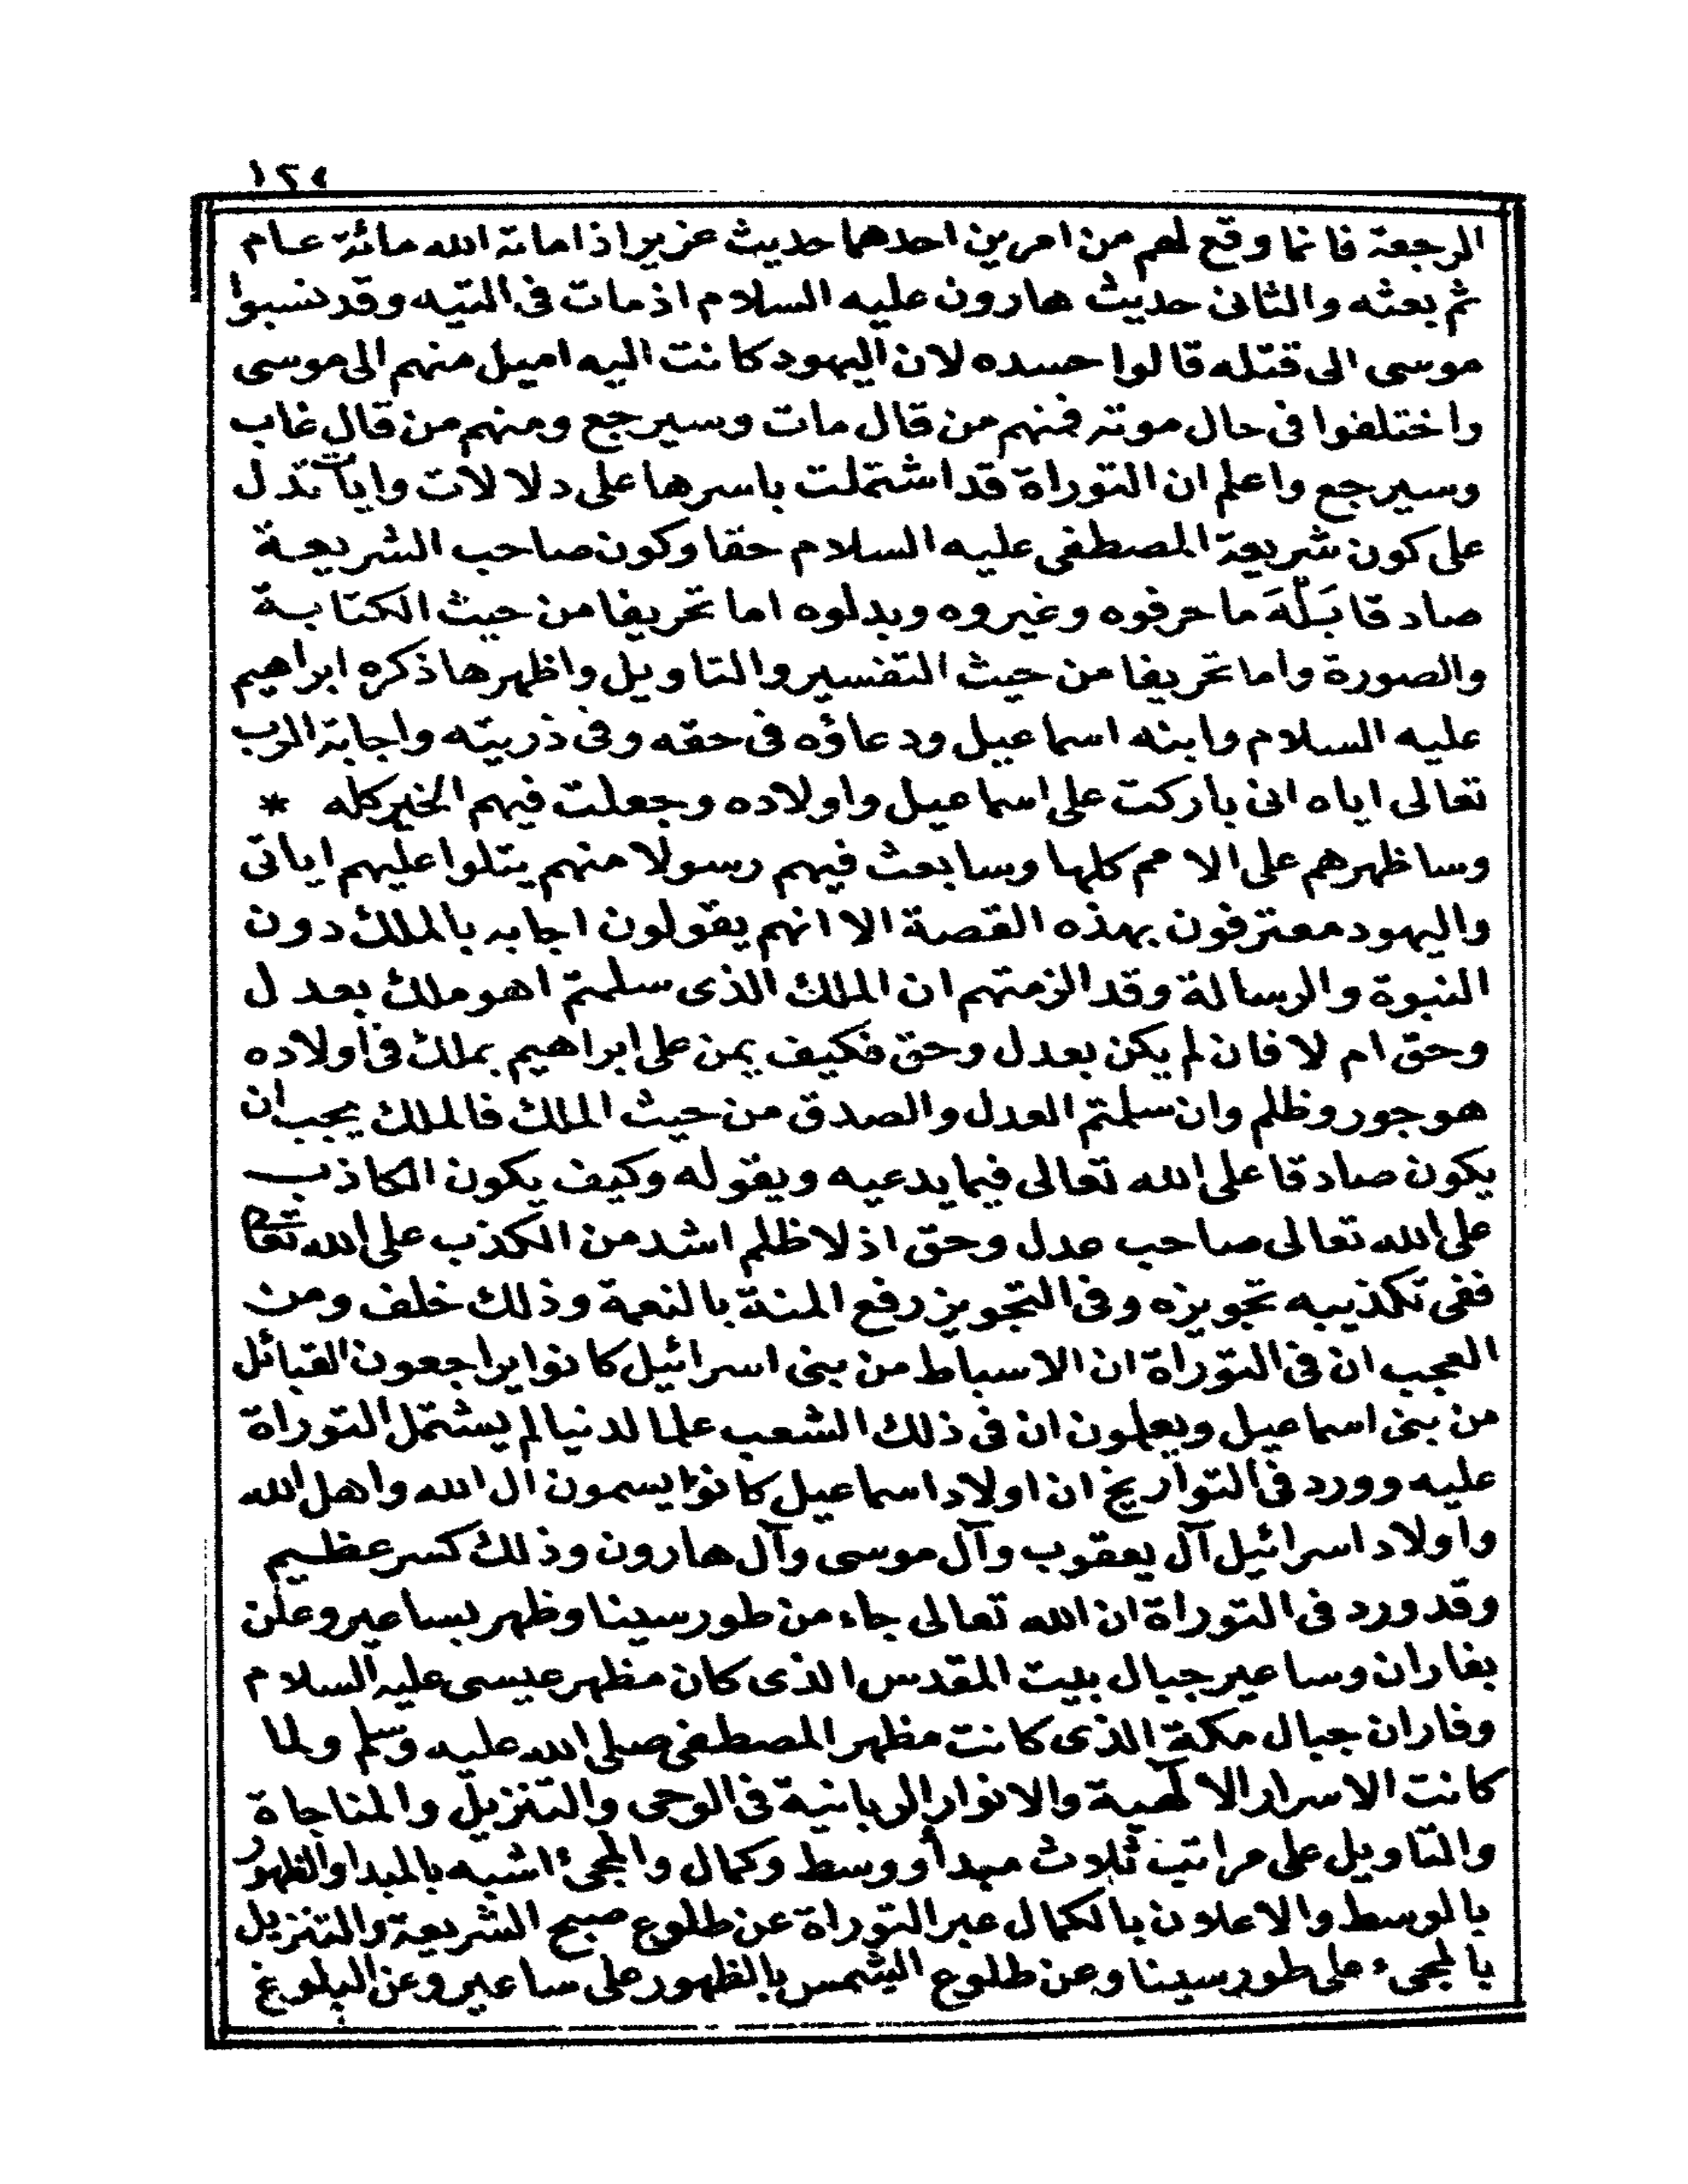 ١٢٠
الرجعة فانما وقع لهم من امرين احدهما حديث عزير اذ اماته الله مائة عام
ثم بعثه والثانى حديث هارون عليه السلام اذ مات فى التيه وقد نسبوا
موسى الى قتله قالوا حسده لان اليهود كانت اليه اميل منهم الى موسى
واختلفوا فى حال موته فمنهم من قال مات وسيرجع ومنهم من قال غاب
وسيرجع واعلم ان التوراة قد اشتملت باسرها على دلالات وايات تدل
على كون شريعة المصطفى عليه السلام حقا وكون صاحب الشريعة
صادقا بَلْهَ ما حرفوه وغيروه وبدلوه اما تحريفا من حيث الكتابة
والصورة واما تحريفا من حيث التفسير والتاويل واظهرها ذكره ابراهيم
عليه السلام وابنه اسماعيل ودعاؤه فى حقه وفى ذريته واجابة الرب
تعالى اياه انى باركت على اسماعيل واولاده وجعلت فيهم الخير كله *
وساظهرهم على الامم كلها وسابعث فيهم رسولا منهم يتلوا عليهم اياتى
واليهود معترفون بهذه القصة الا انهم يقولون اجابه بالملك دون
النبوة والرسالة وقد الزمتهم ان الملك الذى سلمتم اهو ملك بعدل
وحق ام لا فان لم يكن بعدل وحق فكيف يمن على ابراهيم بملك فى اولاده
هو جور وظلم وان سلمتم العدل والصدق من حيث الملك فالملك يجب ان
يكون صادقا على الله تعالى فيما يدعيه ويقوله وكيف يكون الكاذب
على الله تعالى صاحب عدل وحق اذ لا ظلم اشد من الكذب على الله تعا
ففى تكذيبه تجويزه وفى التجويز رفع المنة بالنعمة وذلك خلف ومن
العجب ان فى التوراة ان الاسباط من بنى اسرائيل كانوا يراجعون القبائل
من بنى اسماعيل ويعلمون ان فى ذلك الشعب علما لدنيا لم يشتمل التوراة
عليه وورد فى التواريخ ان اولاد اسماعيل كانوا يسمون آل الله واهل الله
واولاد اسرائيل آل يعقوب وآل موسى وآل هارون وذلك كسر عظيم
وقد ورد فى التوراة ان الله تعالى جاء من طور سينا وظهر بساعير وعلن
بفاران وساعير جبال بيت المقدس الذى كان مظهر عيسى عليه السلام
وفاران جبال مكة الذى كانت مظهر المصطفى صلى الله عليه وسلم ولما
كانت الاسرار الالهية والانوار الربانية فى الوحى والتنزيل والمناجاة
والتاويل على مراتب ثلاث مبدأ ووسط وكمال والمجئ اشبه بالمبدا والظهور
بالوسط والاعلان بالكمال عبر التوراة عن طلوع صبح الشريعة والتنزيل
بالمجىء على طور سينا وعن طلوع الشمس بالظهور على ساعير وعن البلوغ